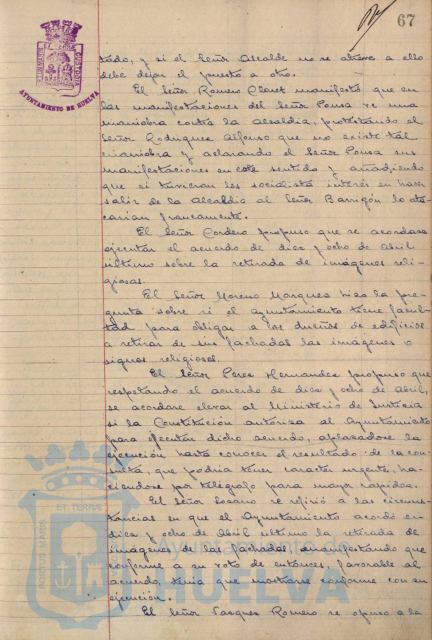 67
AYUNTAMIENTO DE HUELVA
tado, y si el Señor Alcalde no se atreve a ello
debe dejar el puesto a otro.
El Señor Romero Claret manifestó que en
las manifestaciones del Señor Ponsa ve una
maniobra contra la Alcaldia, protestando el
Señor Rodriguez Alfonso que no existe tal
maniobra y aclarando el Señor Ponsa sus
manifestaciones en este sentido y añadiendo
que si tuvieran los socialista interés en hacer
salir de la Alcaldia al Señor Barrigón lo ata-
carian francamente.
El Señor Cordero propuso que se acordara
ejecutar el acuerdo de diez y ocho de Abril
último sobre la retirada de imágenes reli-
giosas.
El Señor Moreno Marquez hizo la pre-
gunta sobre si el ayuntamiento tiene facul-
tad para obligar a los dueños de edificios
a retirar de sus fachadas las imágenes o
signos religiosos.
El Señor Perez Hernandez propuso que
respetando el acuerdo de diez y ocho de Abril,
se acordare elevar al Ministerio de Justicia
si la Constitución autoriza al Ayuntamiento
para ejecutar dicho acuerdo, aplazandose la
ejecución hasta conocer el resultado de la con-
sulta, que podria tener caracter urgente, ha-
ciendose por telégrafo para mayor rapidez.
El Señor Lozano se refirió a las circuns-
tancias en que el Ayuntamiento acordó en
diez y ocho de Abril último la retirada de
imágenes de las fachadas manifestando que
conforme a su voto de entonces, favorable al
acuerdo, tenia que mostrarse conforme con su
ejecución.
El Señor Vasquez Romero se opuso a la
PORTUS MARIS ET TERRAE
HUELVA